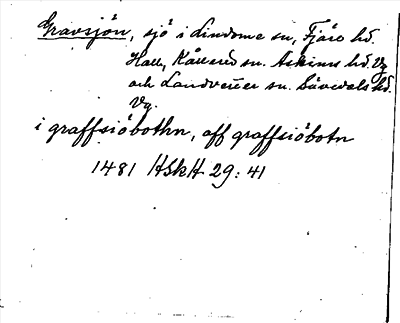 Gravsjön, sjö i Lindome sn, Fjäre hd.
Hall, Kållered sn. Askims hd. Vg
och Landvetter sn. Sävedals hd.
Vg.
i graffsiöbothn, aff graffsiöbotn
1481 HSkH 29:41